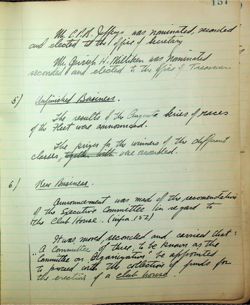 157
Mr. C.P.R. Jeffreys was nominated, seconded
and elected to the office of Secretary
Mr. Joseph H. Milliken was nominated
seconded and elected to the office of Treasurer
5) Unfinished Business.
The results of the Augusta Series of races
of the Fleet was announced.
The prizes for the winners of the different
classes were awarded.
6) New Business.
Announcement was made of the recomendations
of the Executive Committee in regard to
the Club House. (supra 152)
It was moved, seconded and carried that:
"A Committee of three, to be known as the
Committee on Organization be appointed
to proceed with the collection of funds for
the erection of a club house."